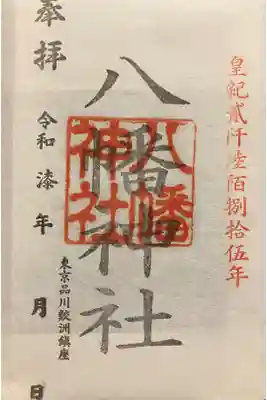 皇紀貳仟陸陌捌拾伍年
八幡神社
八幡神社
東京品川鮫洲鎮座
奉拝
令和漆年 月 日